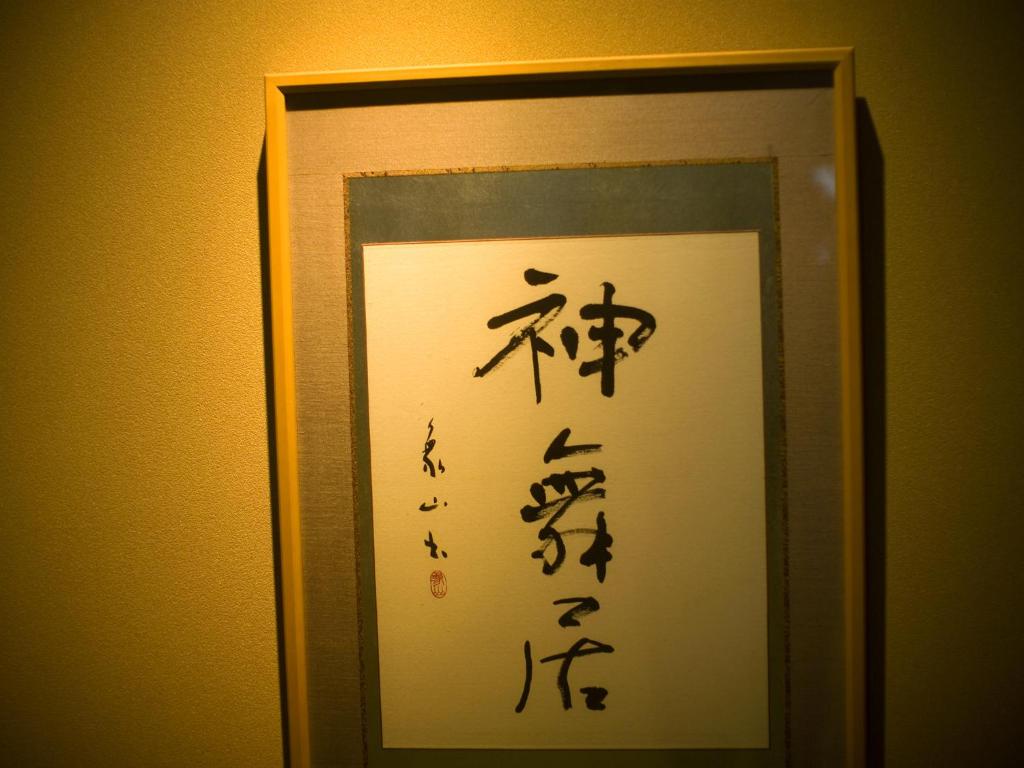 神舞居
象山书